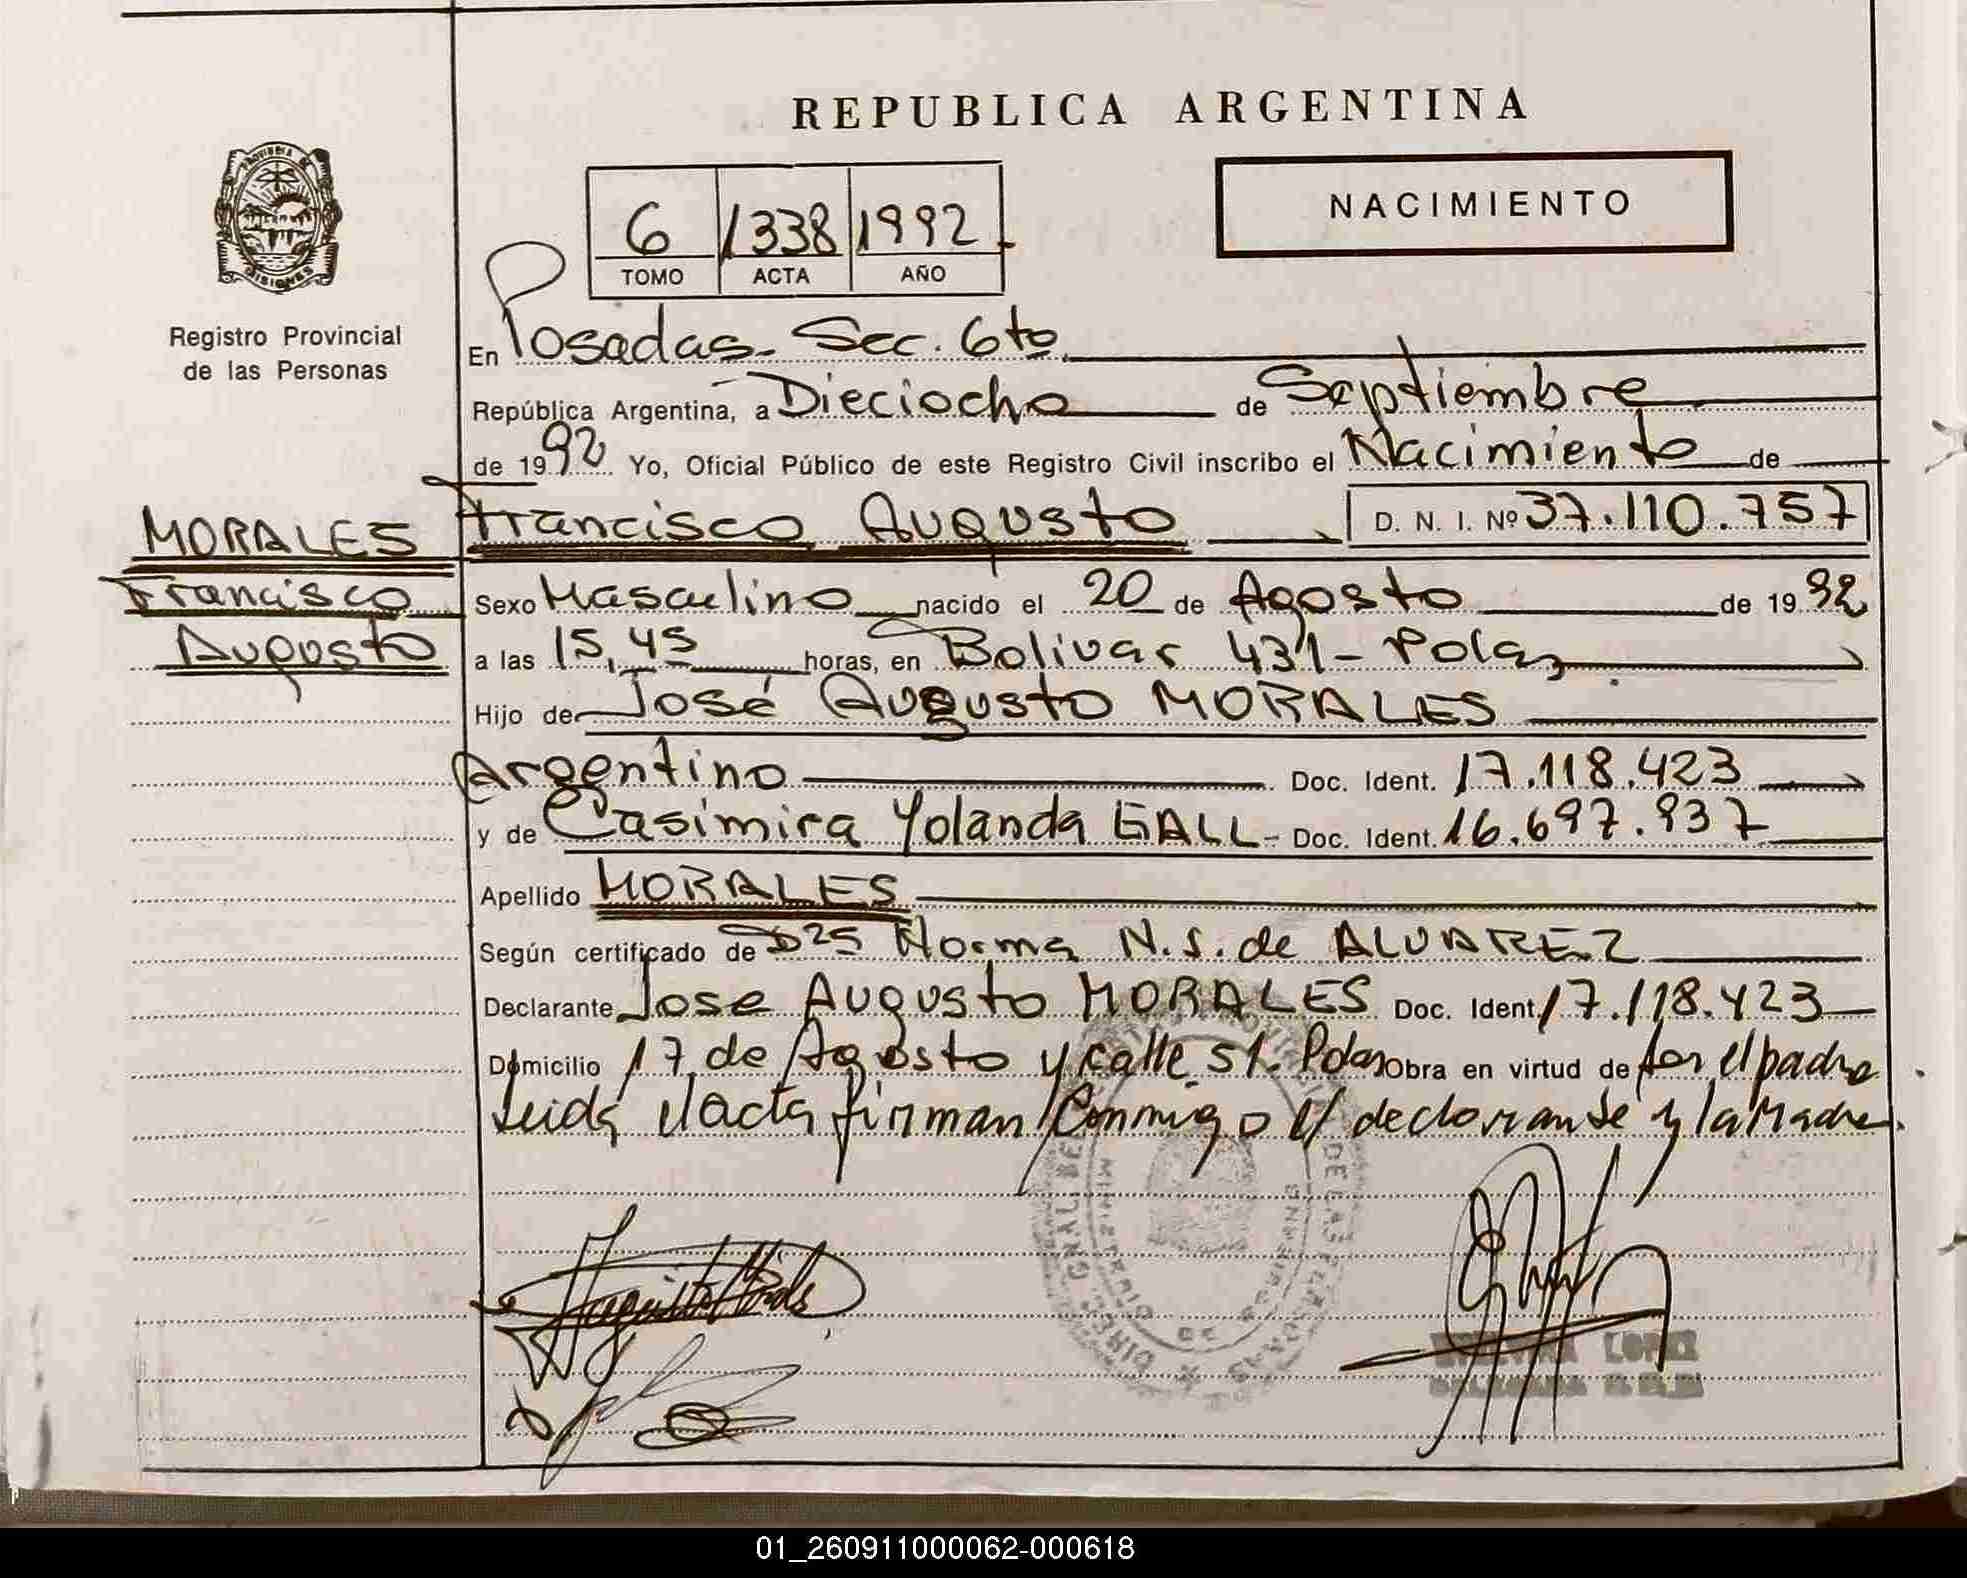 REPUBLICA ARGENTINA
NACIMIENTO
6 1338 1992
TOMO ACTA AÑO
Registro Provincial
de las Personas
En Posadas - Sec. 6to
República Argentina, a Dieciocho de Septiembre
de 1992 Yo, Oficial Público de este Registro Civil inscribo el Nacimiento de
Francisco Augusto D. N. I. Nº 37.110.757
MORALES
Francisco
Augusto
Sexo Masculino nacido el 20 de Agosto de 1992
a las 15,45 horas, en Bolivar 431 -
Hijo de José Augusto MORALES
Argentino Doc. Ident. 17.118.423
y de Casimira Yolanda GALL - Doc. Ident. 16.697.937
Apellido MORALES
Según certificado de Norma N. S. de ALVAREZ
Declarante Jose Augusto MORALES Doc. Ident. 17.118.423
Domicilio 17 de Agosto y calle 51. Obra en virtud de ser el padre
Leida el acta firman conmigo el declarante y la Madre.
LOPEZ
01_260911000062-000618